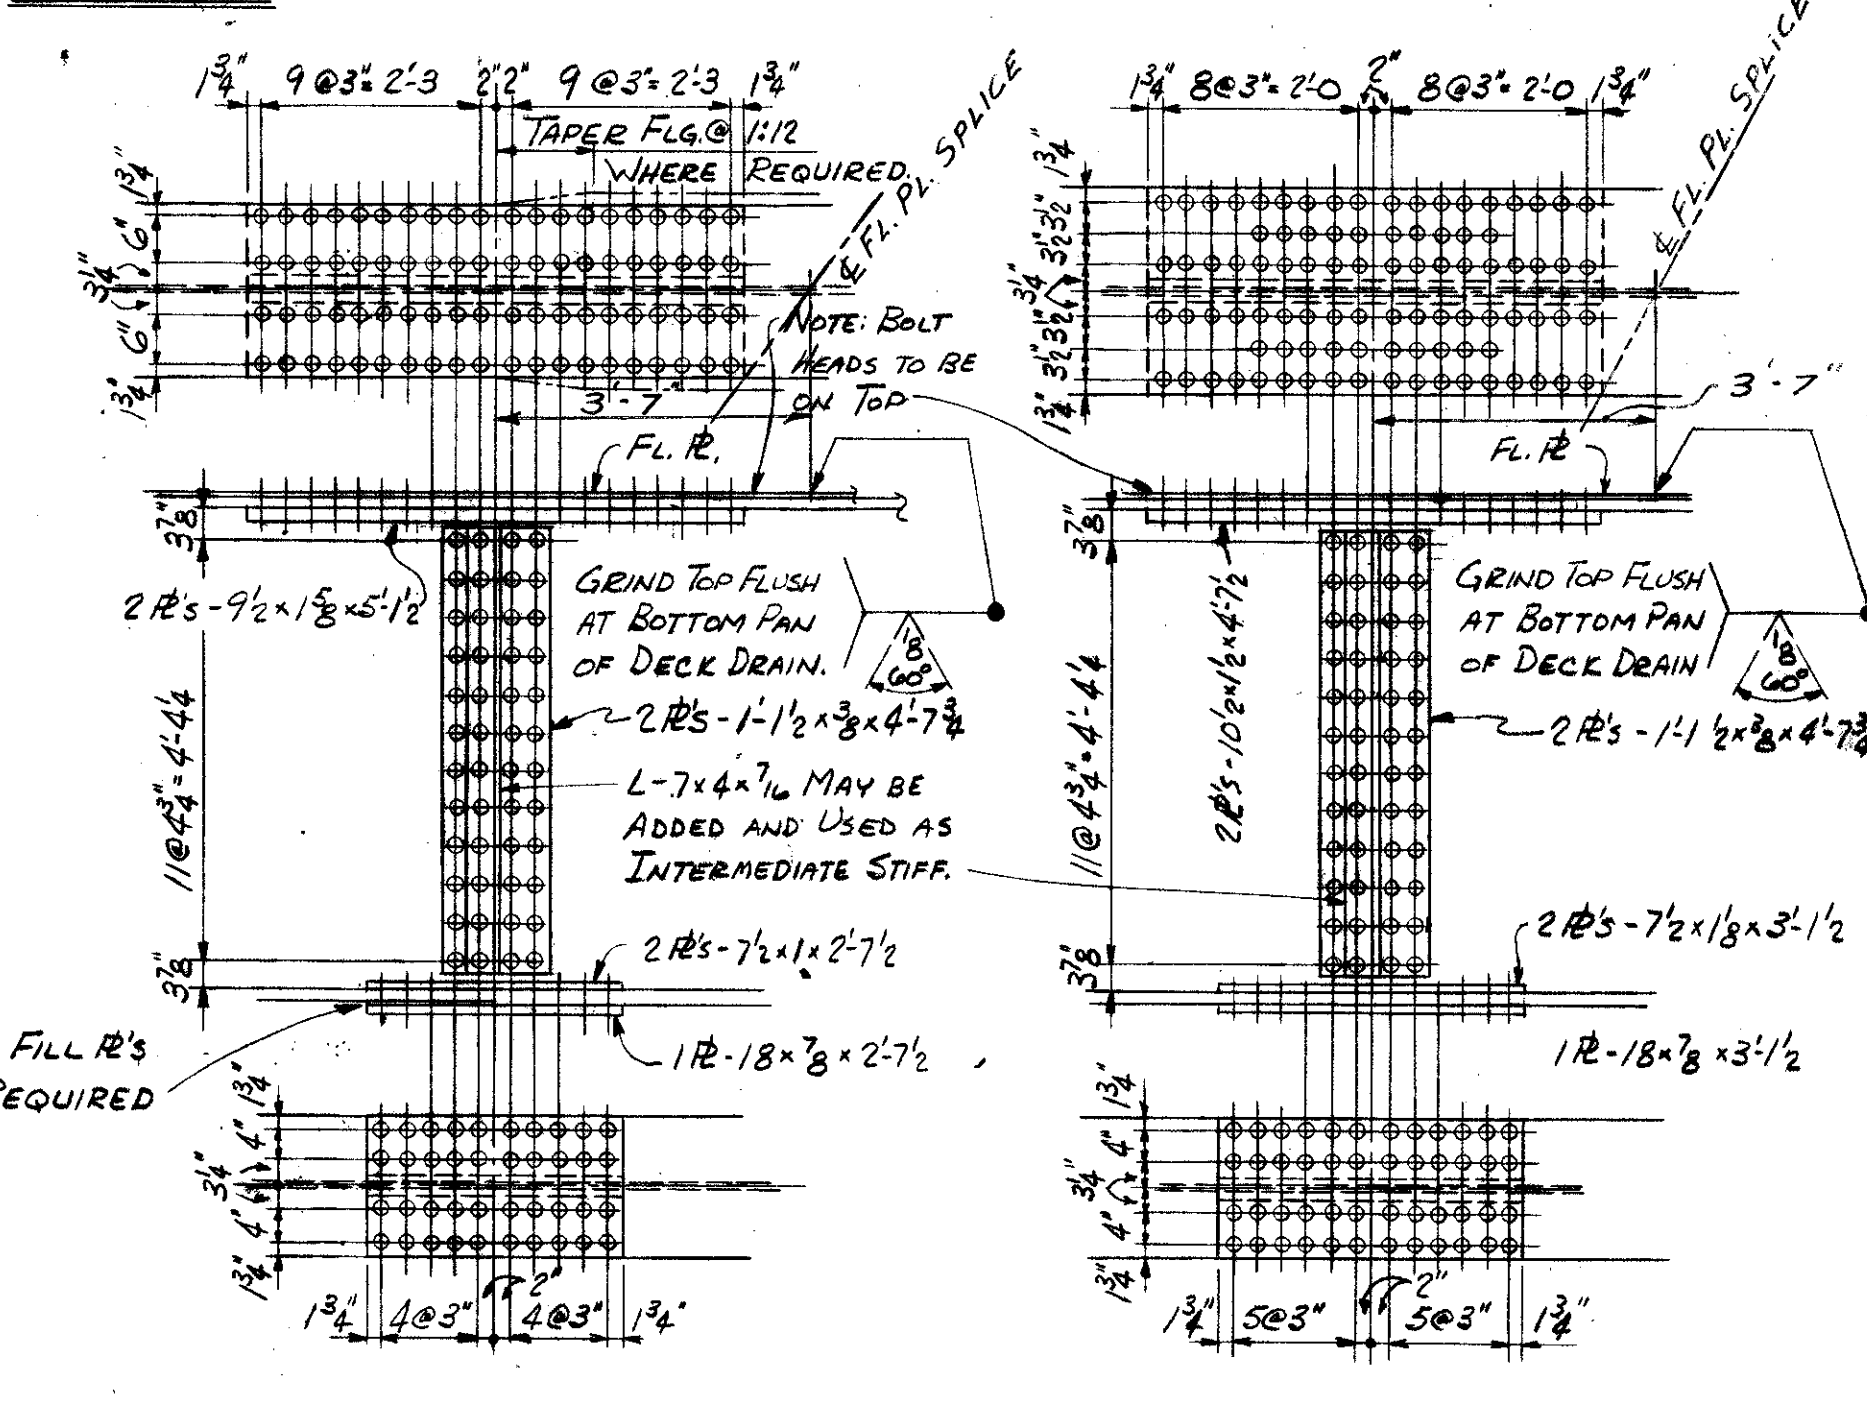 1 3/4" 9 @ 3" = 2'-3 2" 2" 9 @ 3" = 2'-3 1 3/4"
TAPER FLG. @ 1:12
WHERE REQUIRED.
℄ FL. PL. SPLICE
1 3/4"
6"
3 1/4"
6"
1 3/4"
NOTE: BOLT
HEADS TO BE
ON TOP
3'-7"
FL. ℙL.
3 7/8"
2 ℙL's - 9 1/2 x 1 5/8 x 5'-1 1/2
GRIND TOP FLUSH
AT BOTTOM PAN
OF DECK DRAIN.
1/8
60°
2 ℙL's - 1'-1 1/2 x 3/8 x 4'-7 3/4
11 @ 4 3/4" = 4'-4 1/4
L-7x4x7/16 MAY BE
ADDED AND USED AS
INTERMEDIATE STIFF.
2 ℙL's - 7 1/2 x 1 x 2'-7 1/2
3 7/8"
FILL ℙL's
REQUIRED
1 ℙL - 18 x 7/8 x 2'-7 1/2
1 3/4"
4"
3 1/4"
4"
1 3/4"
2"
1 3/4" 4@3" 4@3" 1 3/4"
1 3/4" 8@3" = 2'-0 2" 8@3" = 2'-0 1 3/4"
℄ FL. PL. SPLICE
1 3/4"
3 1/2"
3 1/2"
3 1/4"
3 1/2"
3 1/2"
1 3/4"
3'-7"
FL. ℙL
3 7/8"
2 ℙL's - 10 1/2 x 1 1/2 x 4'-7 1/2
GRIND TOP FLUSH
AT BOTTOM PAN
OF DECK DRAIN
1/8
60°
2 ℙL's - 1'-1 1/2 x 3/8 x 4'-7 3/4
11 @ 4 3/4" = 4'-4 1/4
2 ℙL's - 7 1/2 x 1 1/8 x 3'-1 1/2
3 7/8"
1 ℙL - 18 x 7/8 x 3'-1 1/2
1 3/4"
4"
3 1/4"
4"
1 3/4"
2"
1 3/4" 5@3" 5@3" 1 3/4"